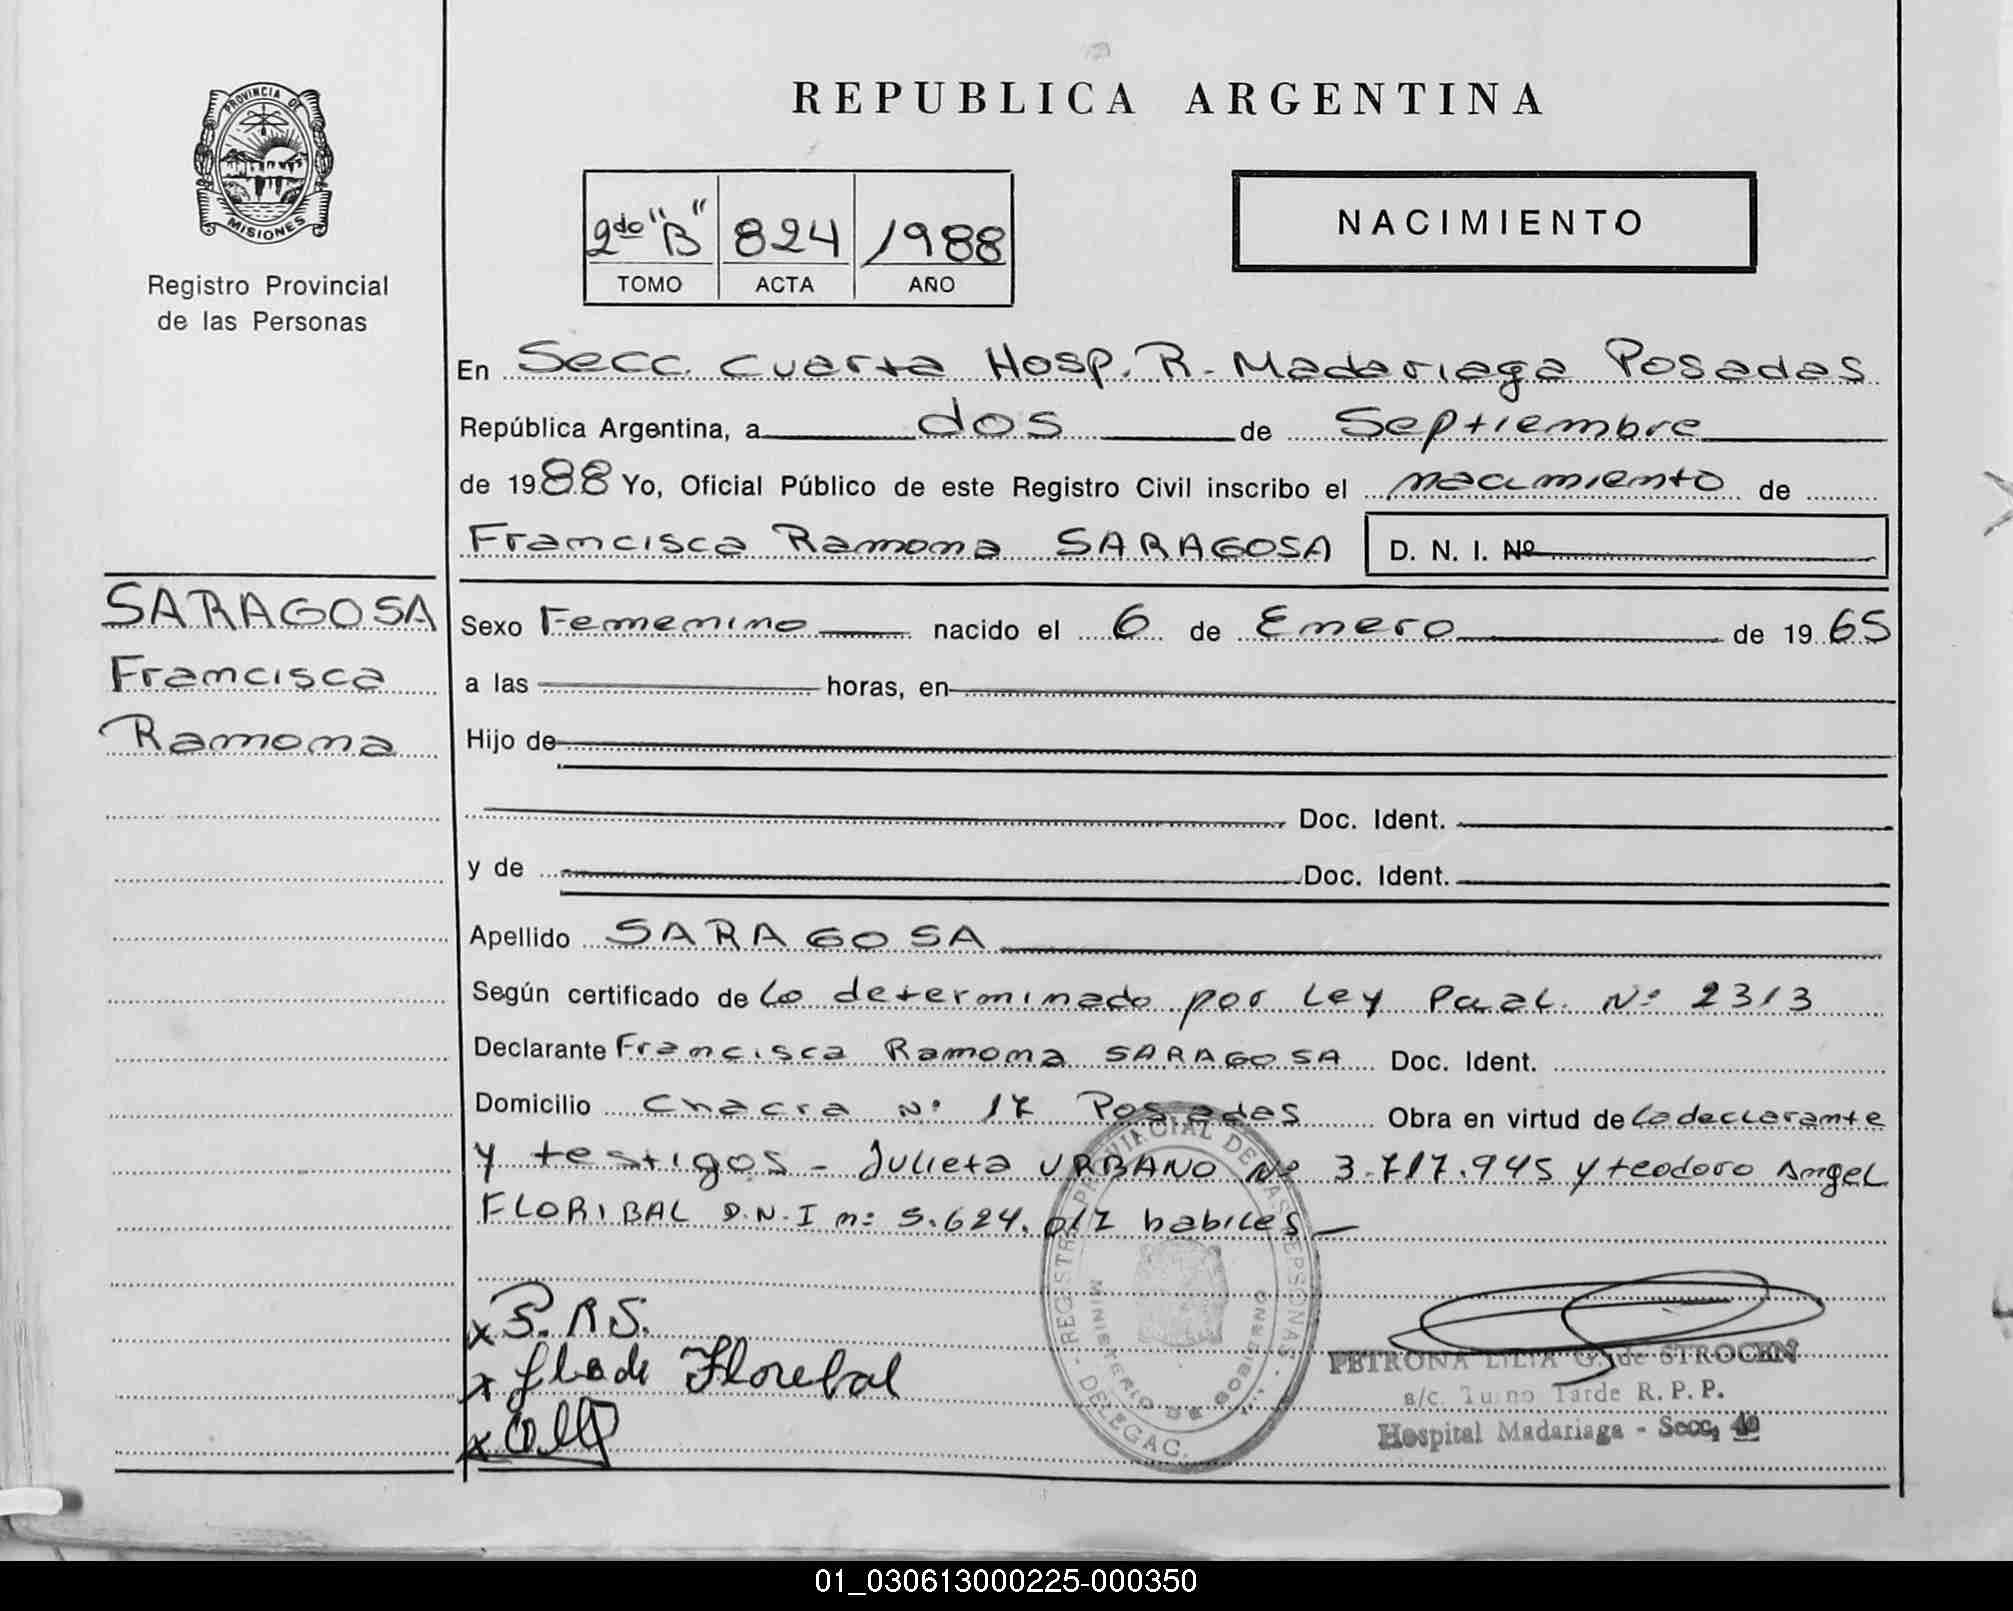 REPUBLICA ARGENTINA
PROVINCIA DE
MISIONES
Registro Provincial
de las Personas
2do "B" 824 1988
TOMO ACTA AÑO
NACIMIENTO
En Secc. Cuarta Hosp. R. Madariaga Posadas
República Argentina, a dos de Septiembre
de 1988 Yo, Oficial Público de este Registro Civil inscribo el nacimiento de
Francisca Ramona SARAGOSA D. N. I. Nº
SARAGOSA
Francisca
Ramona
Sexo Femenino nacido el 6 de Enero de 1965
a las horas, en
Hijo de
Doc. Ident.
y de Doc. Ident.
Apellido SARAGOSA
Según certificado de lo determinado por Ley Pcial. Nº 2313
Declarante Francisca Ramona SARAGOSA Doc. Ident.
Domicilio Chacra Nº 17 Posadas Obra en virtud de la declarante
y testigos - Julieta URBANO Nº 3.717.945 y teodoro Angel
FLORIBAL D.N.I nº 5.624.017 habiles
REGISTRO PROVINCIAL DE LAS PERSONAS - DELEGAC.
MINISTERIO DE GOBIERNO
x F. R S.
x Florebal
x
PETRONA LILIA G. de STROCEN
a/c. Turno Tarde R. P. P.
Hospital Madariaga - Secc. 4a
01_030613000225-000350